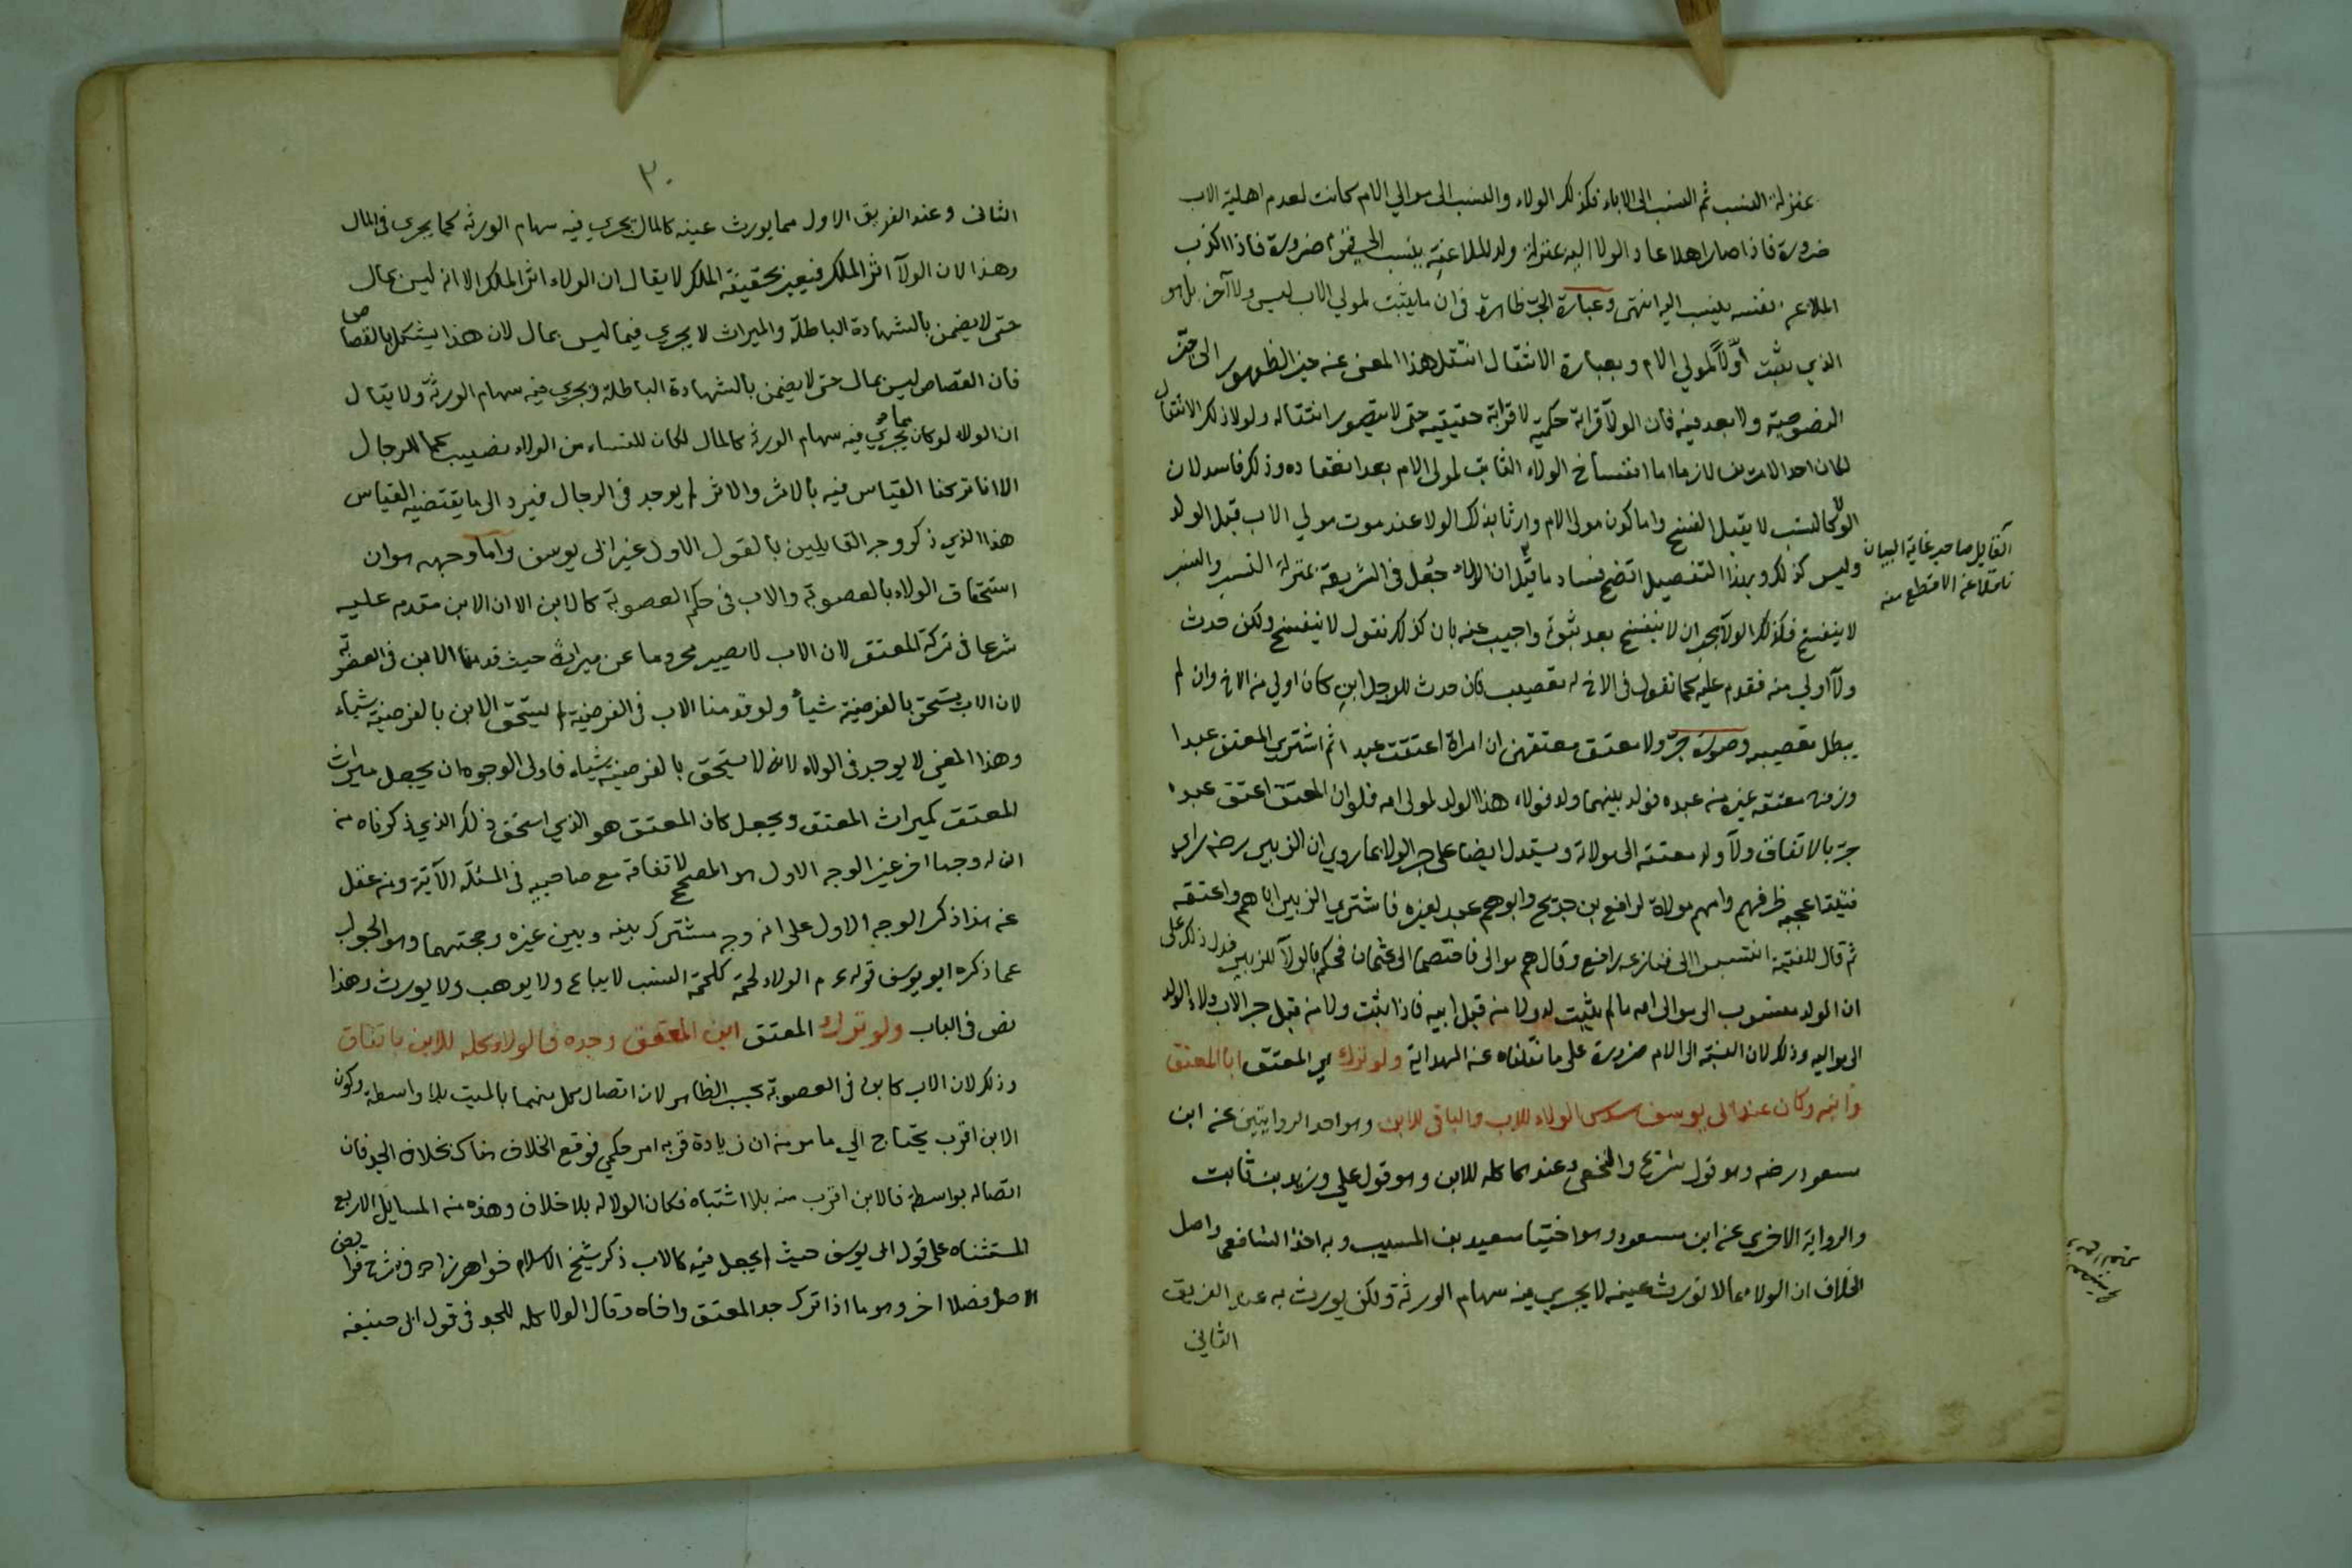 بمنزلة النسب ثم النسب الى الاباء فكذلك الولاء والنسب الى موالي الام كانت لعدم اهلية الاب
ضرورة فاذا صار اهلا عاد الولا اليه بمنزلة ولد الملاعنة ينسب الى قوم ضرورة فاذا اكذب
الملاعن نفسه ينسب اليه انتهى وعبارة الجر ظاهرة في ان ما يثبت لمولي الاب ليس ولا آخر بل هو
الذي يثبت اوّلاً لمولي الام وبعبارة الانتقال انتقل هذا المعنى عنه حيز الظهور الى حيز
النصوصية ولا بعد فيه فان الولآ قرابة حكمية لا قرابة حقيقية حتى لا يتصور انتقاله ولولا ذلك الانتقال
لكان احد الامرين لازما اما انفساخ الولاء الثابت لمولى الام بعد انعقاده وذلك فاسد لان
الولا كالنسب لا يقبل الفسخ واما كون مولى الام وارثا بذلك الولا عند موت مولي الاب قبل الولد
وليس كذلك وبهذا التفصيل اتضح فساد ما قيل ان الولاء جعل في الشريعة بمنزلة النسب والنسب
القايل صاحب غاية البيان
ناقلا عن الاقطع منه
لا ينفسخ فكذلك الولآ يجب ان لا ينفسخ بعد ثبوته واجيب عنه بان كذلك نقول لا ينفسخ ولكن حدث
ولآ اولي منه فقدم عليه كما نقول في الاخ له تعصيب فان حدث للرجل ابن كان اولي من الاخ وان لم
يبطل تعصيبه وصورة جرّ ولا معتق معتقهن ان امراة اعتقت عبدا ثم اشترى المعتق عبدا
وزوجه معتقة غيره منه عبده فولد بينهما ولد فولاء هذا الولد لمولى امه فلو ان المعتق اعتق عبده
جر بالاتفاق ولآ ولد معتقه الى مولاته ويستدل ايضا على جر الولا بما روي ان الزبير رضه راي
فتية اعجبه ظرفهم وامهم مولاة لرافع بن خديج وابوهم عبد لغيره فاشترى الزبير اباهم واعتقه
ثم قال للفتية انتسبوا الى فنازعه رافع وقال هم موالى فاختصما الى عثمان فحكم بالولآ للزبير فدل ذلك على
ان الولد منسوب الى موالى امه ما لم يثبت له ولا من قبل ابيه فاذا ثبت ولا من قبل جر الاب ولاء الولد
الى مواليه وذلك لان النسبة الى الام ضرورة على ما نقلناه عنه الهداية ولو ترك اي المعتق ابا المعتق
وابنه وكان عند ابى يوسف سدس الولاء للاب والباقى للابن وهو احد الروايتين عنه ابن
مسعود رضه وهو قول شريح والنخعى وعندهما كله للابن وهو قول علي وزيد بن ثابت
والرواية الاخرى عنه ابن مسعود وهو اختيار سعيد بن المسيب وبه اخذ الشافعى واصل
الخلاف ان الولاء مما لا تورث عينه لا يجري فيه سهام الورثة ولكن يورث به عند الفريق
الثانى
٣٠
الثانى وعند الفريق الاول مما يورث عينه كالمال يجري فيه سهام الورثة كما يجرى في المال
وهذا لان الولآ اثر الملك فيعتبر بحقيقة الملك لا يقال ان الولاء اثر الملك الا انه ليس بمال
حتى لا يضمن بالشهادة الباطلة والميراث لا يجري فيما ليس بمال لان هذا يشكل بالقصاص
فان القصاص ليس بمال حتى لا يضمن بالشهادة الباطلة ويجري فيه سهام الورثة ولا يقال
ان الولاء لو كان مما يجري فيه سهام الورثة كالمال لكان للنساء من الولاء نصيب كما للرجال
الا انا تركنا القياس فيه بالاثر والاثر لم يوجد في الرجال فيرد الى ما يقتضيه القياس
هذا الذي ذكر وجه القايلين بالقول الاول غير ابى يوسف واما وجهه هو ان
استحقاق الولاء بالعصوبة والاب في حكم العصوبة كالابن الا ان الابن مقدم عليه
شرعا في تركة المعتق لان الاب لا يصير محروما عن ميراثه حيث قدمنا الابن في العصوبة
لان الاب يستحق بالفرضية شيأ ولو قدمنا الاب في الفرضية لم يستحق الابن بالفرضية شيأ
وهذا المعني لا يوجد في الولاء لانه لا يستحق بالفرضية شيأ فاولى الوجوه ان يجعل ميراث
المعتق كميراث المعتق ويجعل كان المعتق هو الذي استحق ذلك الذي ذكرناه من
ان له وجها اخر غير الوجه الاول هو المصحح لاتفاقه مع صاحبيه في المسئلة الآتية ومنه غفل
عنه هذا ذكر الوجه الاول على انه وجه مشترك بينه وبين غيره وحجتهما وهو الجواب
عما ذكره ابو يوسف قوله ءم الولاء لحمة كلحمة النسب لا يباع ولا يوهب ولا يورث وهذا
نص في الباب ولو ترك المعتق ابن المعتق وجده فالولاء كله للابن باتفاق
وذلك لان الاب كابن في العصوبة بحسب الظاهر لان اتصال كل منهما بالميت بلا واسطة وكون
الابن اقرب يحتاج الي ما مر منه ان زيادة قربه امر حكمي فوقع الخلاف هناك بخلاف الجد فان
اتصاله بواسطة فالابن اقرب منه بلا اشتباه فكان الولا له بلا خلاف وهذه من المسايل الاربع
المستثناه على قول ابى يوسف حيث لم يجعل فيه كالاب ذكر شيخ الاسلام خواهر زاده في شرح فرايض
الاصل فصلا اخر وهو ما اذا ترك جد المعتق واخاه وقال الولا كله للجد في قول ابى حنيفه